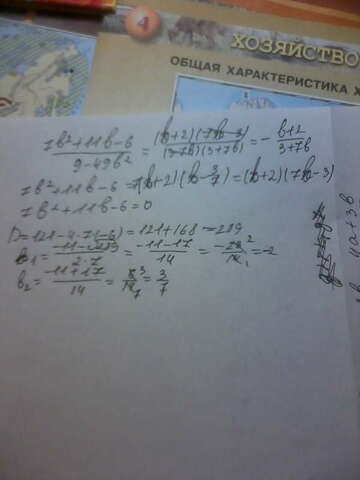 4
ХОЗЯЙСТВО
ОБЩАЯ ХАРАКТЕРИСТИКА Х
(7b²+11b-6)/(9-49b²) = (b+2)(7b-3)/(3-7b)(3+7b) = -(b+2)/(3+7b)
7b²+11b-6 = 7(b+2)(b-3/7) = (b+2)(7b-3)
7b²+11b-6=0
D=121-4·7(-6)=121+168=289
b₁=(-11-√289)/(2·7)=(-11-17)/14=-28²/14₁=-2
b₂=(-11+17)/14=6³/14₇=3/7
4a+3b